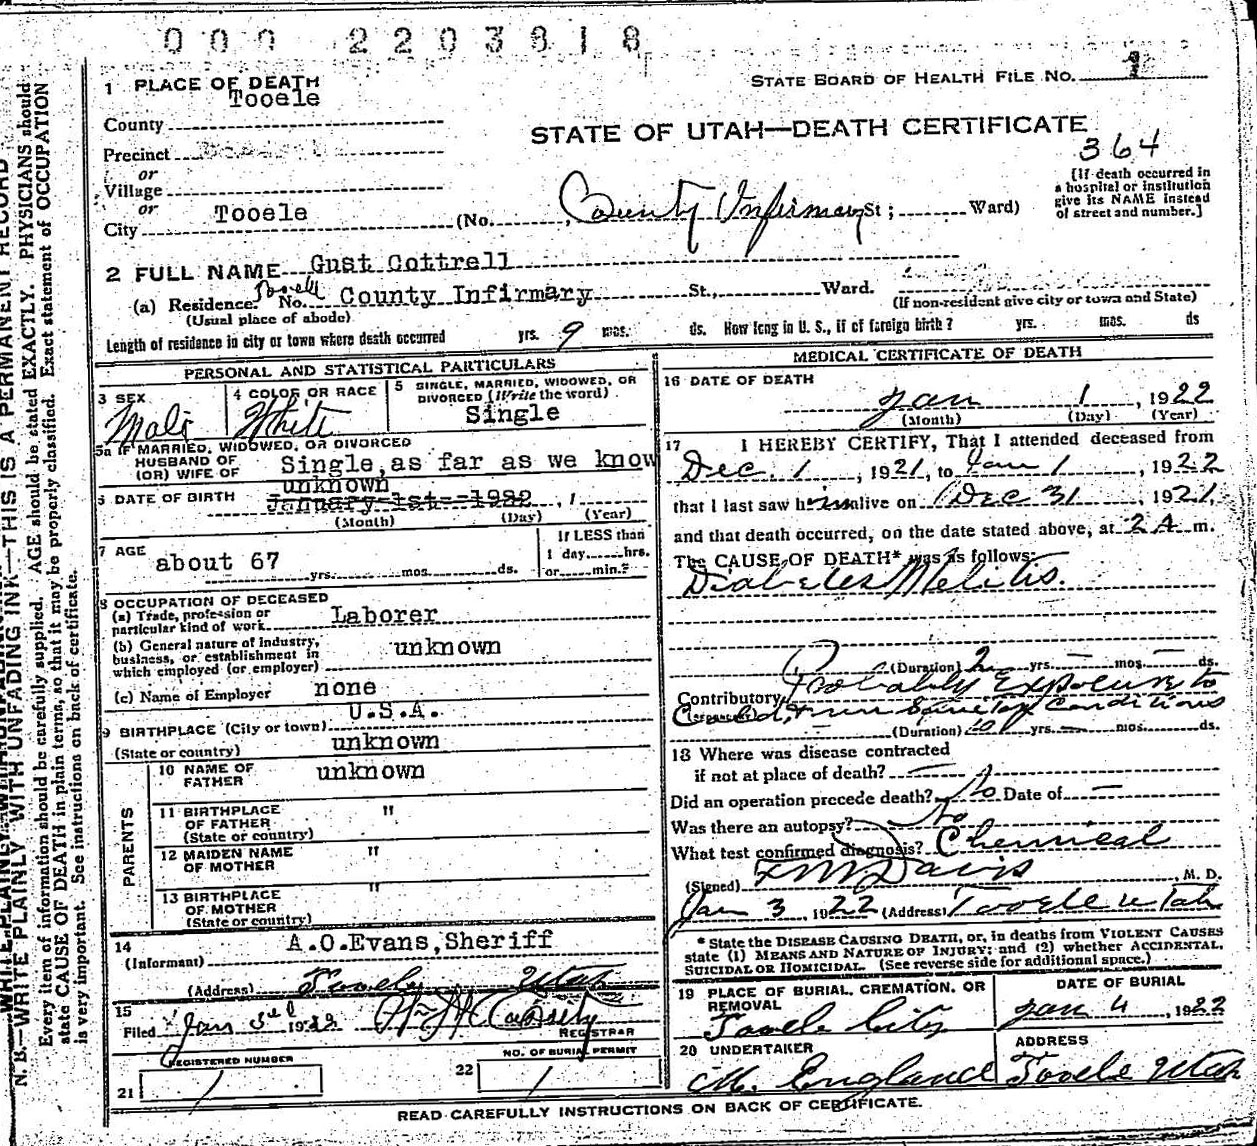 000 2203818
1 PLACE OF DEATH
STATE BOARD OF HEALTH FILE NO. 1
Tooele
County
STATE OF UTAH—DEATH CERTIFICATE
Precinct
364
or
Village
[If death occurred in
a hospital or institution
give its NAME instead
of street and number.]
or
City Tooele (No. County Infirmary St; Ward)
2 FULL NAME Gust Cottrell
(a) Residence. No. County Infirmary St., Ward.
(Usual place of abode)
(If non-resident give city or town and State)
Length of residence in city or town where death occurred yrs. 9 mos. ds. How long in U. S., if of foreign birth? yrs. mos. ds
PERSONAL AND STATISTICAL PARTICULARS
3 SEX
Male
4 COLOR OR RACE
White
5 SINGLE, MARRIED, WIDOWED, OR
DIVORCED (Write the word)
Single
5a IF MARRIED, WIDOWED, OR DIVORCED
HUSBAND OF
(OR) WIFE OF Single, as far as we know
unknown
6 DATE OF BIRTH January 1st--1922 , 1
(Month) (Day) (Year)
7 AGE
about 67
yrs. mos. ds.
If LESS than
1 day, hrs.
or min.?
8 OCCUPATION OF DECEASED
(a) Trade, profession or
particular kind of work Laborer
(b) General nature of industry,
business, or establishment in
which employed (or employer) unknown
(c) Name of Employer none
U.S.A.
9 BIRTHPLACE (City or town)
(State or country) unknown
PARENTS
10 NAME OF
FATHER unknown
11 BIRTHPLACE
OF FATHER "
(State or country)
12 MAIDEN NAME
OF MOTHER "
13 BIRTHPLACE
OF MOTHER "
(State or country)
14
(Informant) A.O.Evans,Sheriff
(Address) Tooele Utah
15
Filed Jan 3rd 1922
REGISTRAR
REGISTERED NUMBER
21 1
NO. OF BURIAL PERMIT
22 1
MEDICAL CERTIFICATE OF DEATH
16 DATE OF DEATH
Jan 1 , 1922
(Month) (Day) (Year)
17 I HEREBY CERTIFY, That I attended deceased from
Dec. 1 , 1921, to Jan 1 , 1922
that I last saw him alive on Dec 31 , 1921
and that death occurred, on the date stated above, at 2 A m.
The CAUSE OF DEATH* was as follows:
Diabetes Melitis.
(Duration) 2 yrs. — mos — ds.
Contributory Probably Exposure to
Conditions
(Duration) 10 yrs. — mos. ds.
18 Where was disease contracted
if not at place of death? —
Did an operation precede death? No Date of —
Was there an autopsy? No
What test confirmed diagnosis? Chemical
(Signed) Davis , M. D.
Jan 3 , 1922 (Address) Tooele Utah
* State the DISEASE CAUSING DEATH, or, in deaths from VIOLENT CAUSES
state (1) MEANS AND NATURE OF INJURY; and (2) whether ACCIDENTAL,
SUICIDAL OR HOMICIDAL. (See reverse side for additional space.)
19 PLACE OF BURIAL, CREMATION, OR
REMOVAL
Tooele City
DATE OF BURIAL
Jan 4 , 1922
20 UNDERTAKER
M. England
ADDRESS
Tooele Utah
READ CAREFULLY INSTRUCTIONS ON BACK OF CERTIFICATE.
N. B.—WRITE PLAINLY WITH UNFADING INK—THIS IS A PERMANENT RECORD
Every item of information should be carefully supplied. AGE should be stated EXACTLY. PHYSICIANS should
state CAUSE OF DEATH in plain terms, so that it may be properly classified. Exact statement of OCCUPATION
is very important. See instructions on back of certificate.